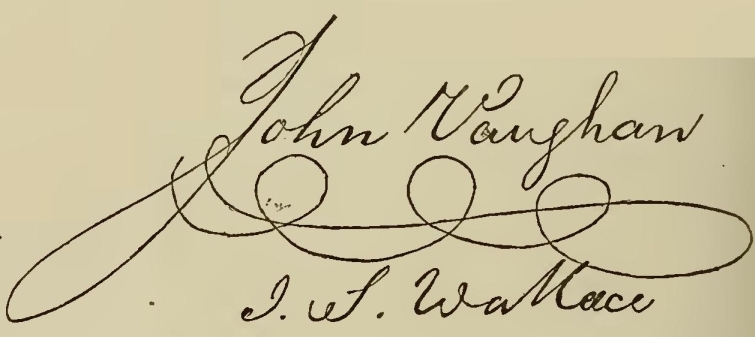 John Vaughan
I. S. Wallace